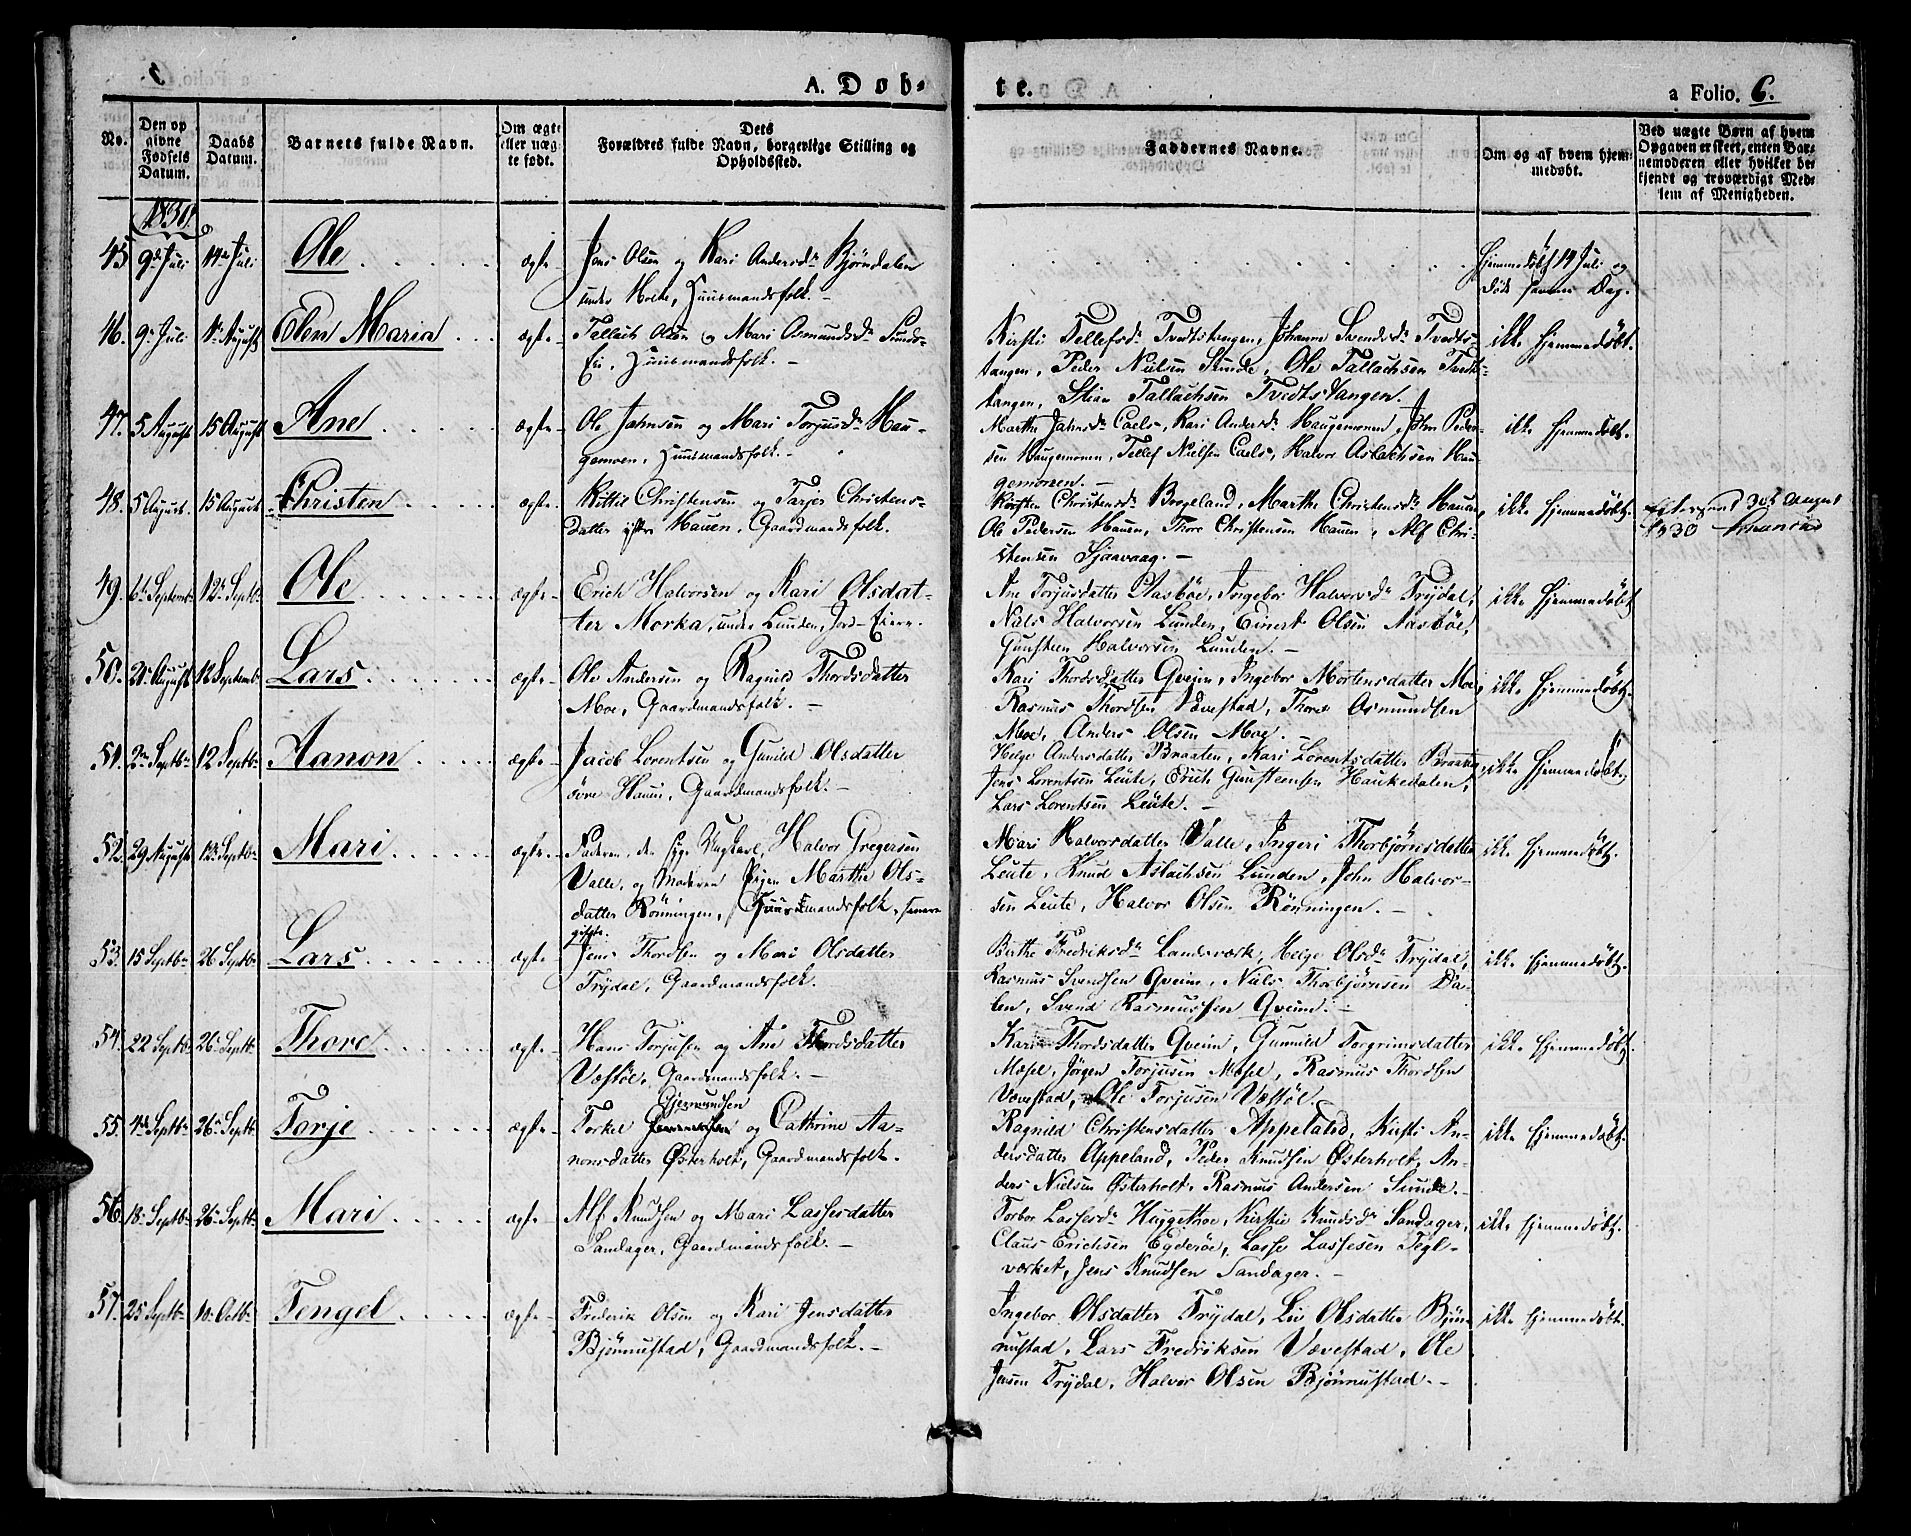 A. Døb-
te.
a Folio. 6.
No.
Den opgivne Fødsels Datum.
Daabs Datum.
Barnets fulde Navn.
Om ægte eller uægte født.
Dets Forældres fulde Navn, borgerlige Stilling og Opholdssted.
Faddernes Navne.
Om og af hvem hjemmedøbt.
Ved uægte Børn af hvem Opgaven er skeet, enten Barnemoderen eller hvilket bekjendt og troværdigt Medlem af Menigheden.
1830.
45. 9de Juli 14de Juli Ole ægte Jens Olsen og Kari Andersdr Bjørndalen
under Holte, Huusmandsfolk. -
Hjemmedøbt 14 Juli og
døde samme Dag.
46. 9de Juli 1ste August Elen Maria ægte Tallach Olsen og Mari Osmundsdr Sunds-
Ei, Huusmandsfolk. -
Kirsti Tellefsdr Tvedtstangen, Johanne Svendsdr Tvedts-
tangen, Peder Nielsen Sunde, Ole Tallachsen Tvedts-
tangen, Stian Tallachsen Tvedtstangen.
ikke hjemmedøbt.
47. 5 August 15 August Ane ægte Ole Jahnsen og Mari Torjusdr Hau-
gemoen, Huusmandsfolk. -
Marthe Jahnsdr Caels, Kari Andersdr Haugemonen, John Peder-
sen Haugemonen, Tellef Nielsen Caels, Halvor Aslachsen Hau-
gemonen. -
ikke hjemmedøbt.
48. 5 August 15 August Christen ægte Kittil Christensen og Tarjer Christens-
Datter Hauen, Gaardmandsfolk.
Kirsten Christensdr Brogeland, Marthe Christensdr Hauen,
Ole Pedersen Hauen, Thore Christensen Hauen, Alf Chri-
stensen Sjaavaag. -
ikke hjemmedøbt.
30te August
1830
49. 6te Septembr 12te Septbr Ole ægte Erich Halvorsen og Kari Olsdat-
ter Morka, under Lunden, Jord-Eiere.
Ane Torjusdatter Aasbøe, Ingebor Halvorsdr Trydal,
Niels Halvorsen Lunden, Einert Olsen Aasbøe,
Gunsteen Halvorsen Lunden. -
ikke hjemmedøbt
50. August 12 Septembr Lars ægte Ole Andersen og Ragnild Thordsdatter
Moe, Gaardmandsfolk. -
Kari Thordsdatter Qveim, Ingebor Mortensdatter Moe,
Rasmus Thordsen Vævestad, Thore Osmundsen
Moe, Anders Olsen Moe. -
ikke hjemmedøbt.
51. 2den Septbr 12 Septbr Aanon ægte Jacob Lorentsen og Gunild Olsdatter
øvre Hauen, Gaardmandsfolk. -
Helge Andersdatter Braaten, Kari Lorentsdatter Braaten,
Jens Lorentsen Leüte, Erich Gunsteensen Haukedalen,
Lars Lorentsen Leüte. -
ikke hjemmedøbt
52. 29 August 12te Septbr Mari ægte Faderen, den Ungkarl, Halvor Gregersen
Valle, og Moderen Pigen Marthe Ols-
datter Rönningen, Gaardmandsfolk, senere
gifte.
Mari Halvorsdatter Valle, Ingeri Thorbjørnsdatter
Leute, Knud Aslachsen Lunden, John Halvor-
sen Leute, Halvor Olsen Rønningen. -
ikke hjemmedøbt.
53. 15 Septbr 26 Septbr Lars ægte Jens Thordsen og Mari Olsdatter
Trydal, Gaardmandsfolk.
Birthe Fredriksdr Landværk, Helge Olsdr Trydal,
Rasmus Svendsen Qveim, Niels Thorbjørnsen Da-
len, Svend Rasmussen Qveim. -
ikke hjemmedøbt.
54. 22 Septbr 26 Septbr Thore ægte Hans Torjusen og Ane Thordsdatter
Væstøl, Gaardmandsfolk. -
Kari Thordsdatter Qveim, Gunnild Torgrimsdatter
Mæsel, Jørgen Torjusen Mæsel, Rasmus Thordsen
Vævestad, Ole Torjusen Væstøl.
ikke hjemmedøbt.
55. Septbr 26 Septbr Torje ægte Torkel Gjermundsen og Cathrine Aa-
nonsdatter Østerholt, Gaardmandsfolk.
Ragnild Christensdatter Appeland, Kirsti An-
dersdatter Appeland, Peder Knudsen Østerholt, An-
ders Nielsen Østerholt, Rasmus Andersen Sunde. -
ikke hjemmedøbt.
56 18. Septbr 26. Septbr Mari ægte Alf Knudsen og Mari Lassesdatter
Sandager, Gaardmandsfolk. -
Torbor Lassesdr Huggethoe, Kirstie Knudsdr Sandager,
Claus Erichsen Eyderøe, Lasse Lassesen Tegl-
værket, Jens Knudsen Sandager. -
ikke hjemmedøbt.
57. 25 Septbr 10. Octbr Tengel ægte Frederik Olsen og Kari Jensdatter
Bjønnustad, Gaardmandsfolk. -
Ingebor Olsdatter Trydal, Liv Olsdatter Bjøn-
nustad, Lars Fredriksen Vævestad, Ole
Jensen Trydal, Halvor Olsen Bjønnustad. -
ikke hjemmedøbt.